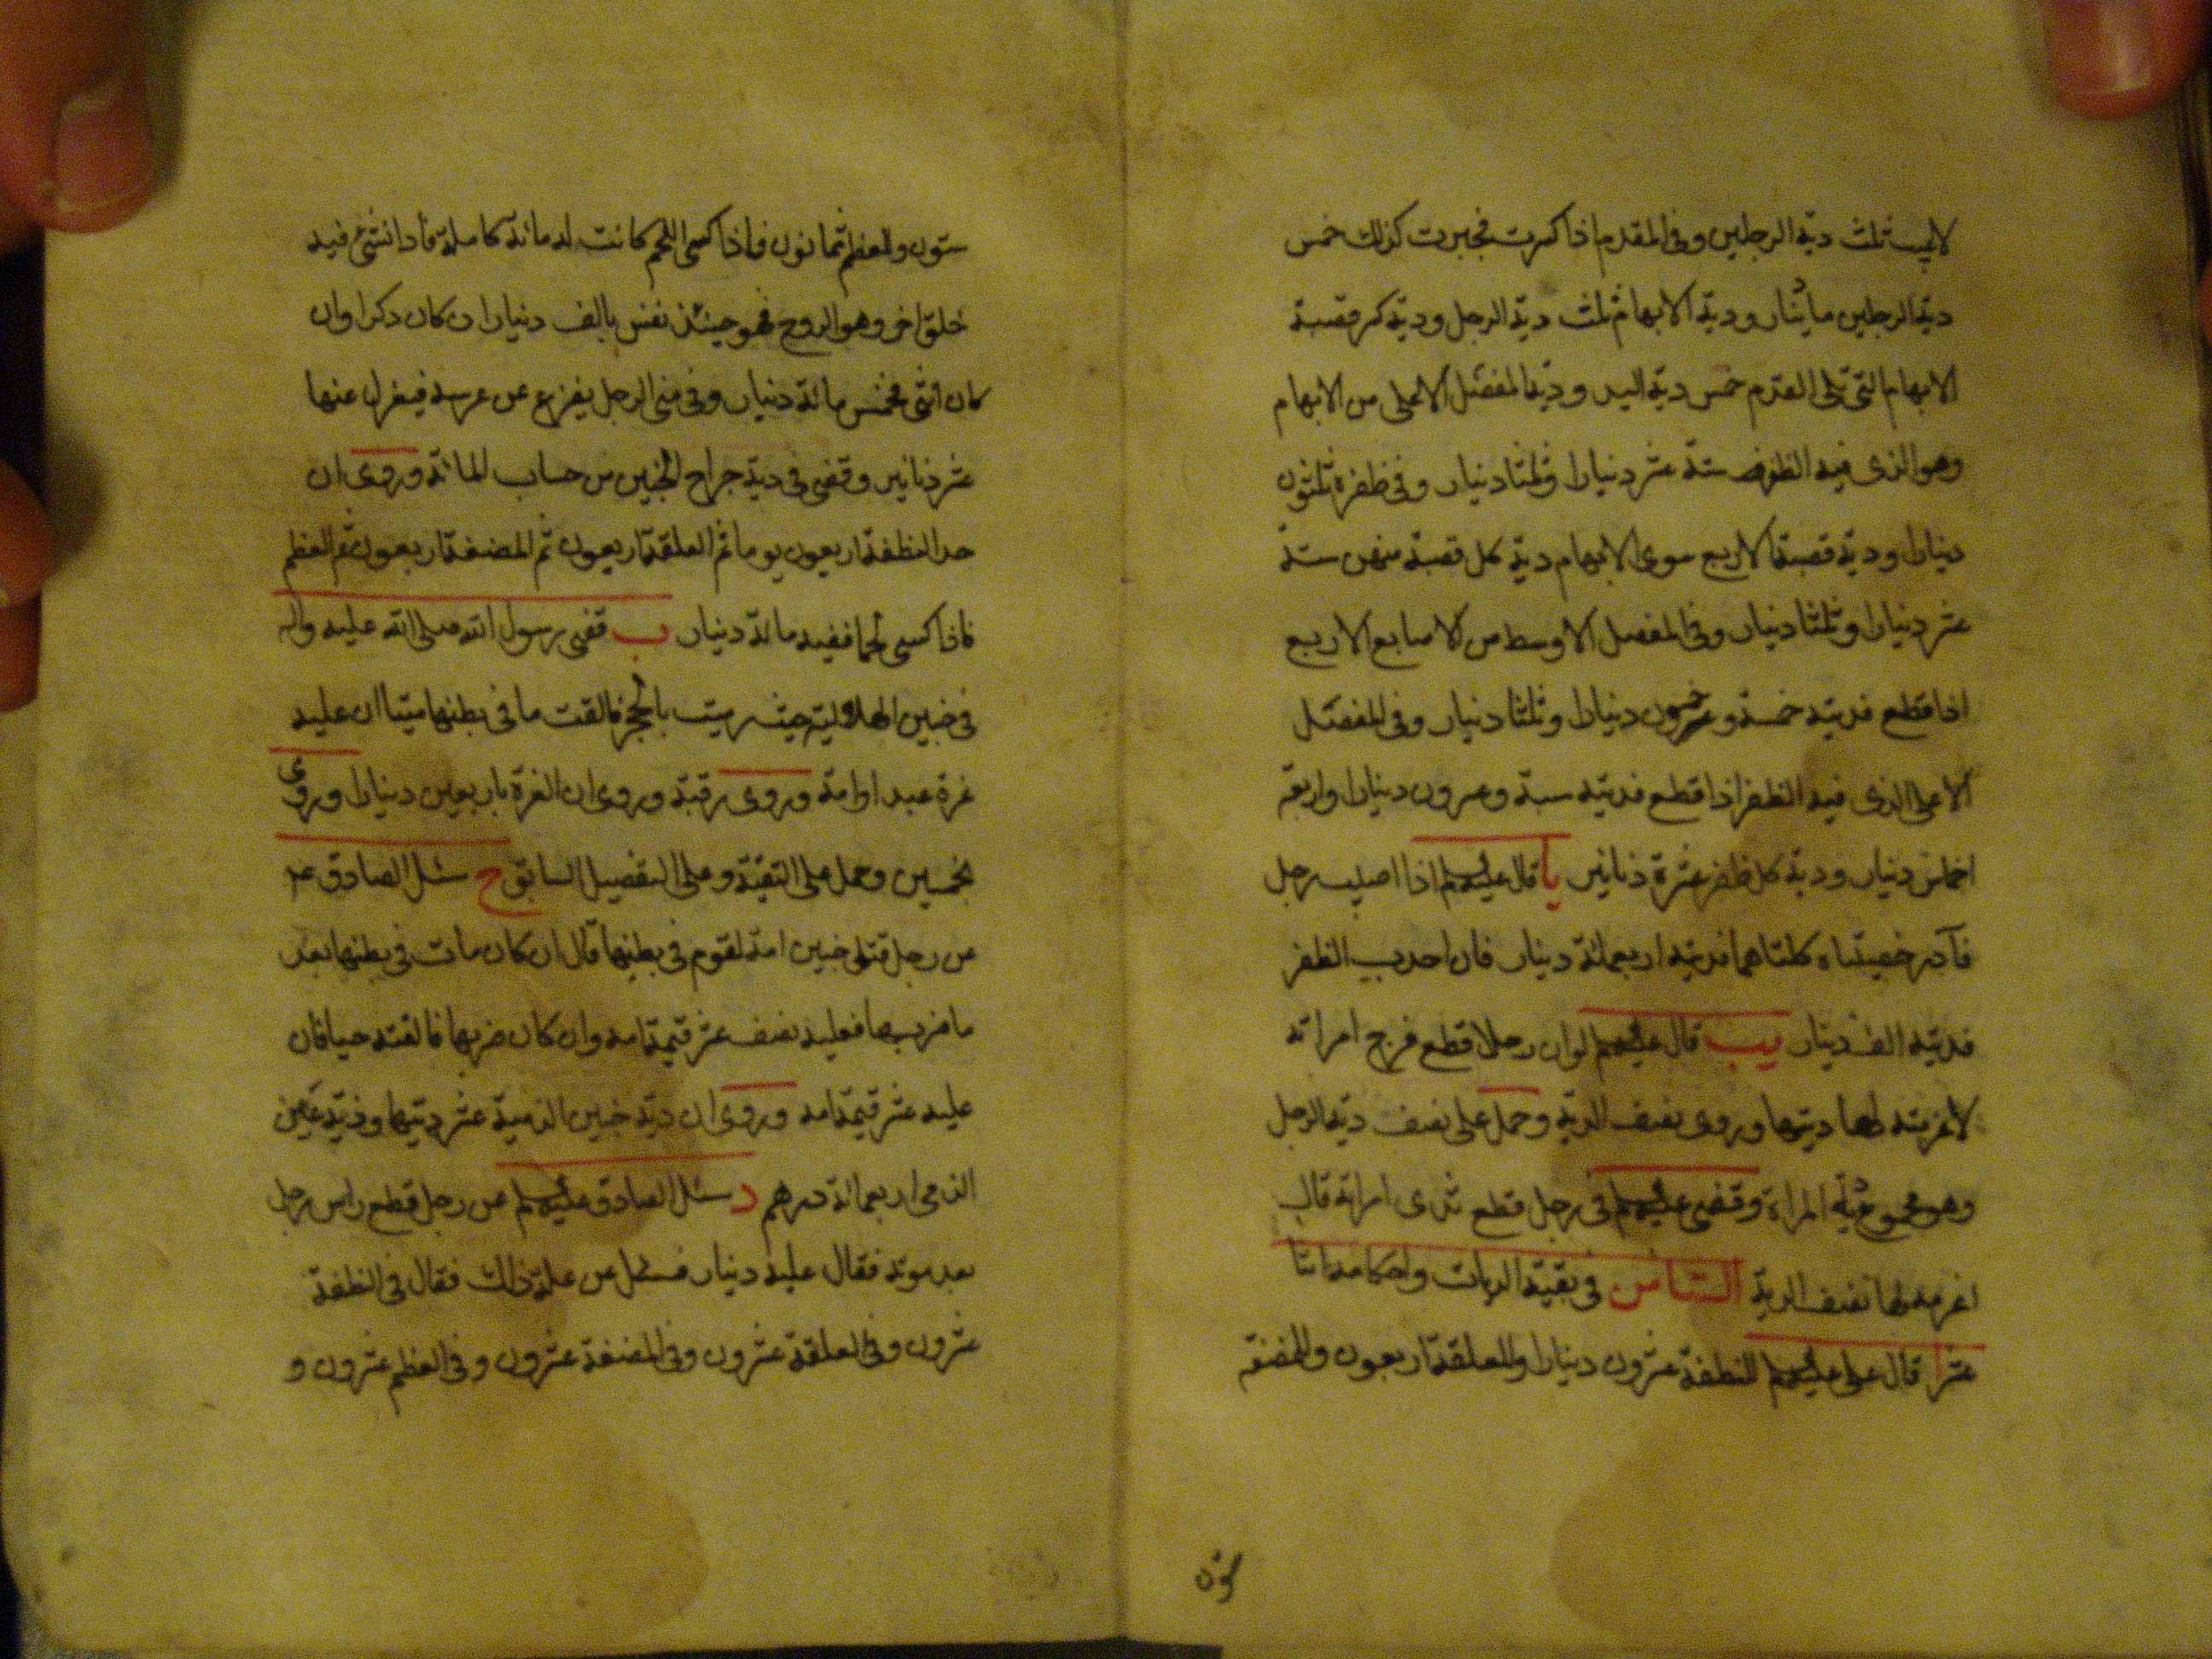 لايعيب ثلث دية الرجلين وفى المقدم اذا كسرت فجبرت كذلك خمس
دية الرجلين مايتا دينار ودية الابهام ثلث دية الرجل ودية كسر قصبة
الابهام التى تلى القدم خمس دية اليد ودية المفصل الاعلى من الابهام
وهو الذى فيه الظفر ستة عشر دينارا وثلثا دينار وفى ظفره ثلثون
دينارا ودية قصبة الاربع سوى الابهام دية كل قصبة منهن ستة
عشر دينارا وثلثا دينار وفى المفصل الاوسط من الاصابع الاربع
اذا قطع فديته خمسة وخمسون دينارا وثلثا دينار وفى المفصل
الاعلى الذى فيه الظفر اذا قطع فديته سبعة وعشرون دينارا واربعة
اخماس دينار ودية كل ظفر عشرة دنانير يا قال عليه السلم اذا اصيب رجل
فآدر خصيتاه كلتاهما فديته اربعمائة دينار فان احدب الظهر
فديته الف دينار يب قال عليه السلم لو ان رجلا قطع فرج امراته
لاغرمته لها ديتها وروى نصف الدية وحمل على نصف دية الرجل
وهو مجموع دية المراة وقضى عليه السلم فى رجل قطع ثدى امراته قال
اغرمه لها نصف الدية الثامن فى بقية الديات واحكامه اثنا
عشر ا قال على عليه السلم للنطفة عشرون دينارا وللعلقة اربعون وللمضغة
ستون
ستون وللعظم ثمانون فاذا كسى اللحم كانت له مائة كاملة فاذا انشئ فيه
خلق اخر وهو الروح فهو حينئذ نفس بالف دينار ان كان ذكرا وان
كان انثى فخمس مائة دينار وفى منى الرجل يفزع عن عرسه فيعزل عنها
عشر دنانير وقضى فى دية جراح الجنين من حساب المائة وروى ان
حد النطفة اربعون يوما ثم العلقة اربعون ثم المضغة اربعون ثم العظم
فاذا كسى لحما ففيه مائة دينار ب قضى رسول الله صلى الله عليه واله
فى جنين الهلالية حيث رميت بالحجر فالقت ما فى بطنها ميتا ان عليه
غرة عبد او امة وروى رقبة وروى ان الغرة باربعين دينارا وروى
بخمسين وحمل على التقية وعلى التفصيل السابق ج سئل الصادق عه
عن رجل قتل جنين امة لقوم فى بطنها قال ان كان مات فى بطنها بعد
ما ضربها فعليه نصف عشر قيمة امه وان كان ضربها فالقته حيا فان
عليه عشر قيمة امه وروى ان دية جنين الذمية عشر ديتها ودية عين
الذمى اربعمائة درهم د سئل الصادق عليه السلم عن رجل قطع راس رجل
بعد موته فقال عليه دينار فسئل عن علة ذلك فقال فى النطفة
عشرون وفى العلقة عشرون وفى المضغة عشرون وفى العظم عشرون و